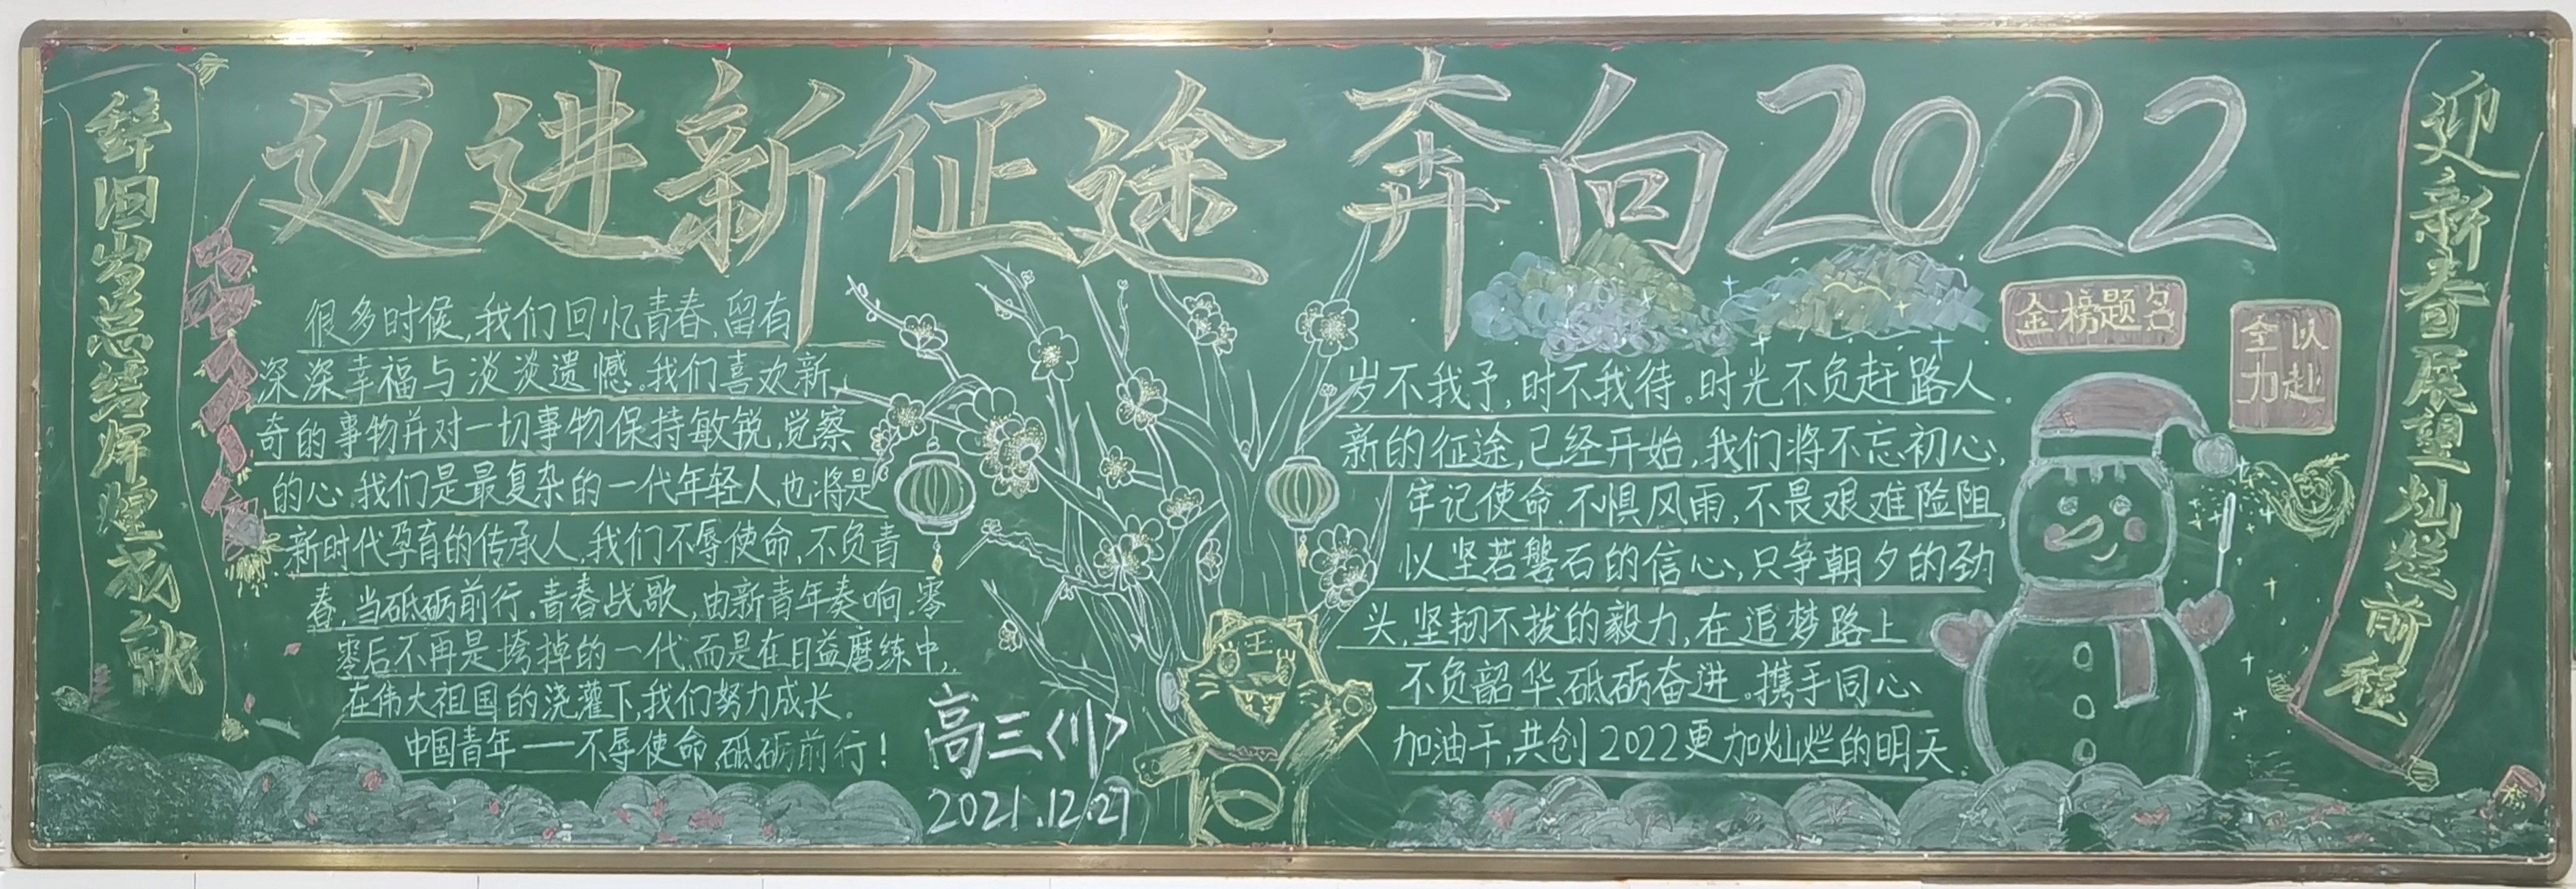 迈进新征途 奔向2022
辞旧岁总结辉煌成就
很多时候,我们回忆青春,留有
深深幸福与淡淡遗憾。我们喜欢新
奇的事物并对一切事物保持敏锐,觉察
的心,我们是最复杂的一代年轻人,也将是
新时代孕育的传承人,我们不辱使命,不负青
春,当砥砺前行。青春战歌,由新青年奏响,零
零后不再是垮掉的一代,而是在日益磨练中,
在伟大祖国的浇灌下,我们努力成长。
中国青年——不辱使命,砥砺前行!
高三〈11〉
2021.12.27
金榜题名
全以
力赴
岁不我予,时不我待。时光不负赶路人。
新的征途,已经开始,我们将不忘初心,
牢记使命,不惧风雨,不畏艰难险阻,
以坚若磐石的信心,只争朝夕的劲
头,坚韧不拔的毅力,在追梦路上
不负韶华,砥砺奋进。携手同心
加油干,共创2022更加灿烂的明天。
迎新春展望灿烂前程